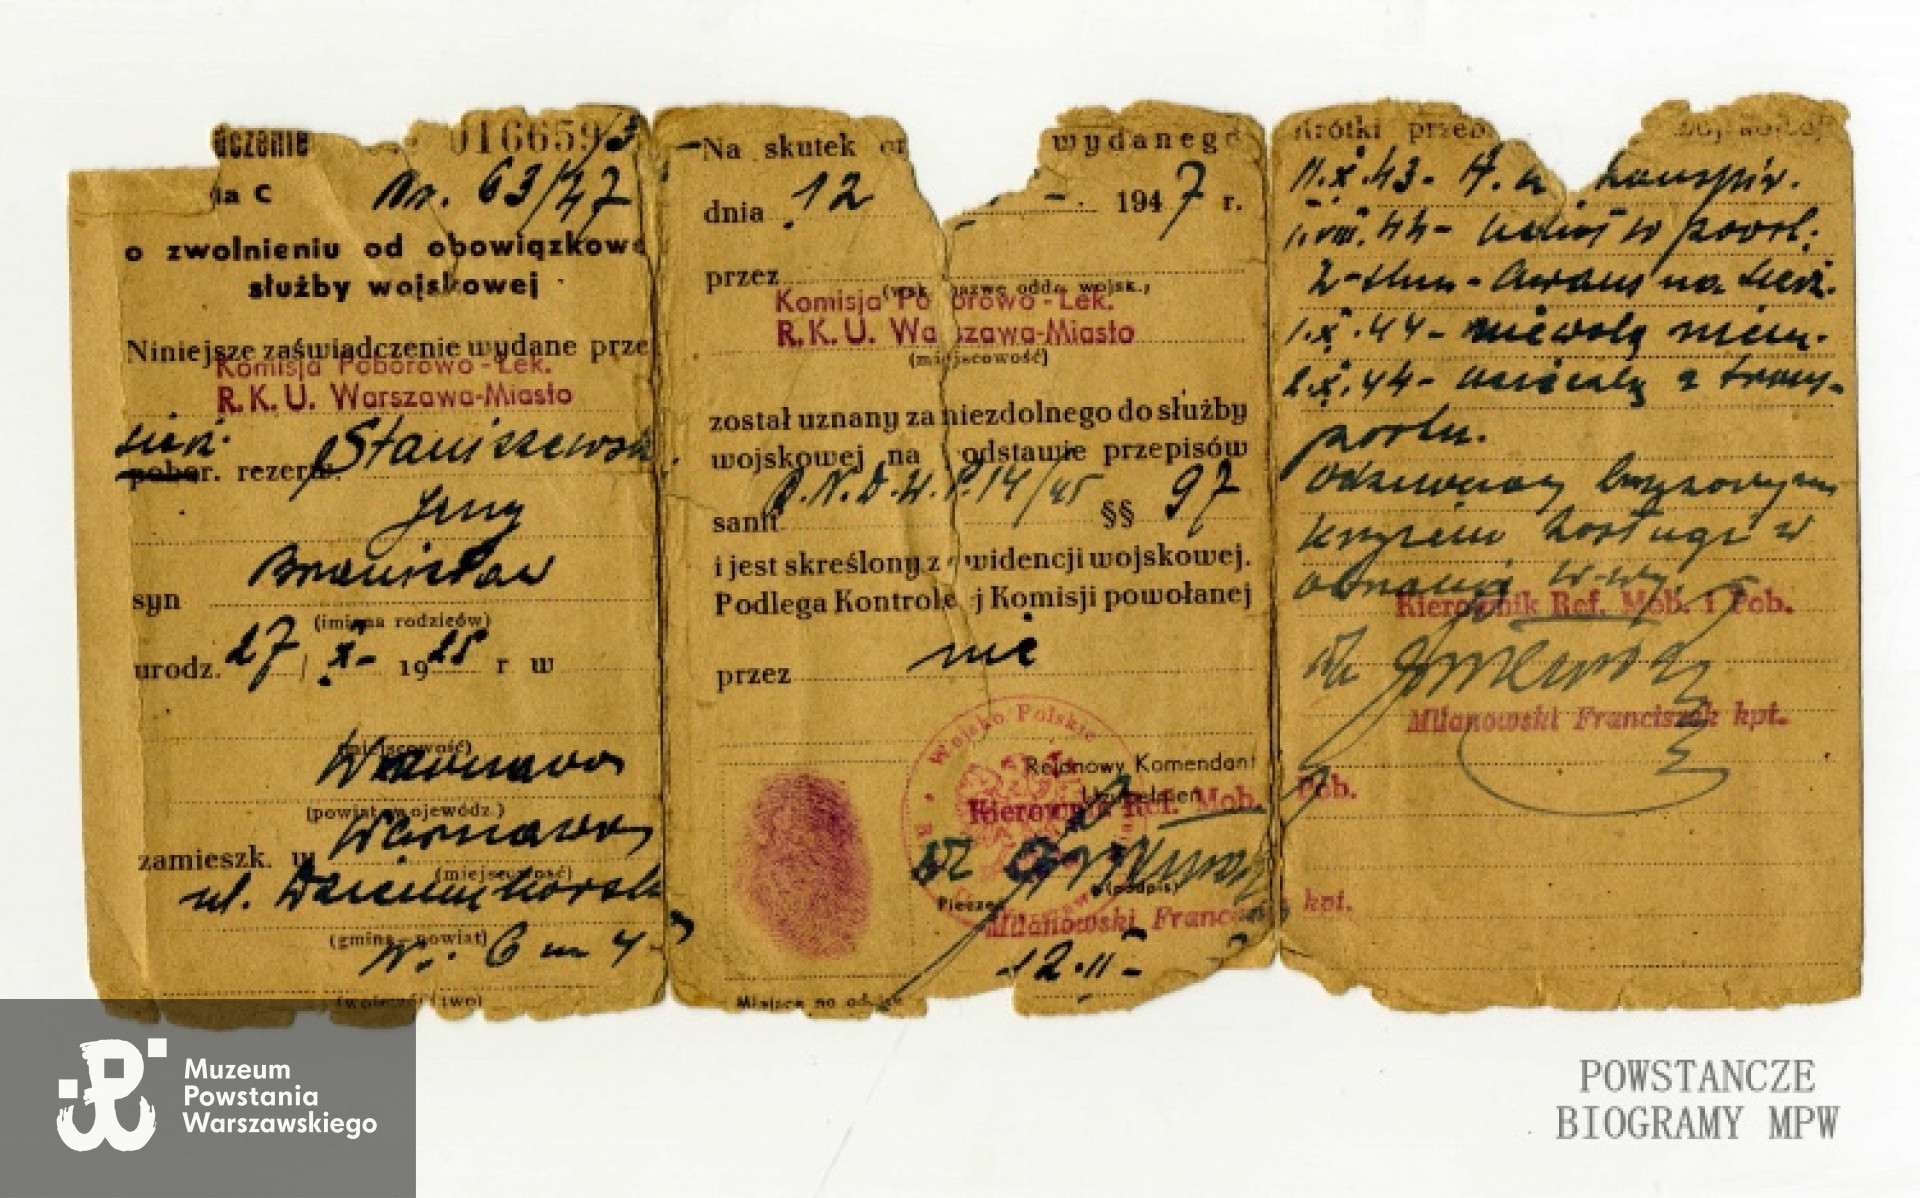 016659
ia C Nr. 63/47
o zwolnieniu od obowiązkowe
służby wojskowej
Niniejsze zaświadczenie wydane prze
Komisja Poborowo-Lek.
R.K.U. Warszawa-Miasto
sierż.
pobor. rezerw. Staniszewsk
Jerzy
Bronisław
syn
(imiona rodziców)
urodz. 27 / X - 1925 r w
(miejscowość)
Warszawa
(powiat, wojewódz.)
zamieszk. w Warszawa
(miejscowość)
ul.
(gmina - powiat)
Nr. 6 m 4
(województwo)
Na skutek wydanego
dnia 12 1947 r.
przez
(wsk. nazwę oddz. wojsk.)
Komisja Poborowo-Lek.
R.K.U. Warszawa-Miasto
(miejscowość)
został uznany za niezdolnego do służby
wojskowej na podstawie przepisów
sanit. D.N.D.W.P. 14/45 §§ 97
i jest skreślony z ewidencji wojskowej.
Podlega Kontrolnej Komisji powołanej
przez nie
Wojsko Polskie
Rejonowy Komendant
Uzupełnień
Kierownik Ref. Mob. i Pob.
(podpis)
Pieczęć
Milanowski Franciszek kpt.
12.II -
Miejsce na odcisk
Krótki przeb
11.X.43 - konspir.
1.VIII.44 - w powst.
awans na sierż.
1.X.44 - niewola niem.
2.X.44 - z trans-
portu.
odznaczony brązowym
krzyżem zasługi w
obronie W-wy.
Kierownik Ref. Mob. i Pob.
Milanowski Franciszek kpt.
Muzeum
Powstania
Warszawskiego
POWSTAŃCZE
BIOGRAMY MPW